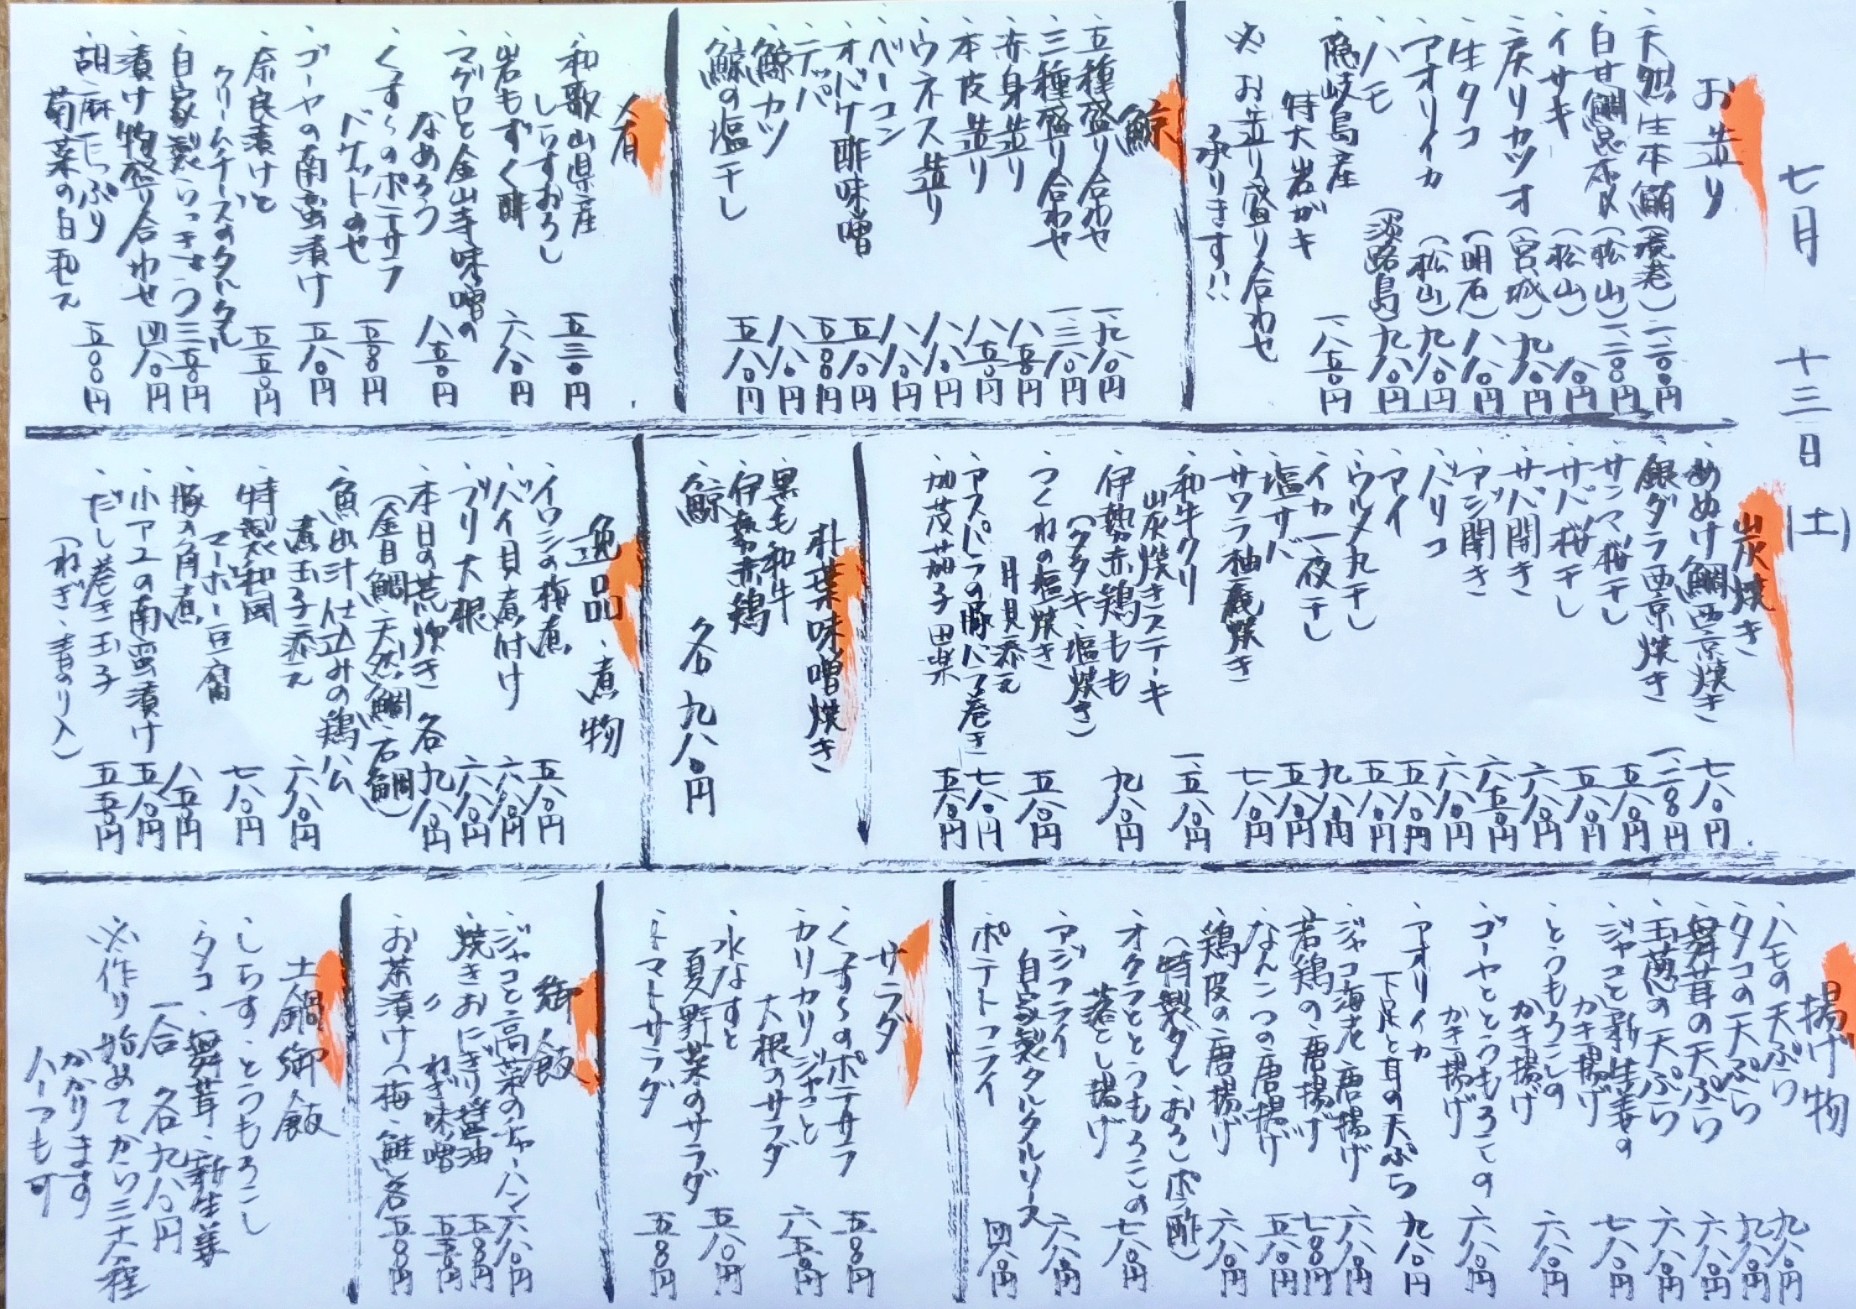 七月 十三日(土)
お造り
・天然生本鮪(境港)一、二〇〇円
・白甘鯛昆布〆(松山)一、二〇〇円
・イサキ(松山)
・戻りカツオ(宮城)九八〇円
・生タコ(明石)八八〇円
・アオリイカ(松山)九八〇円
・ハモ(淡路島)九八〇円
・隠岐島産
特大岩がき 一、八五〇円
※お造り盛り合わせ
承ります!!
鯨
・五種盛り合わせ 一、九八〇円
・三種盛り合わせ 一、三八〇円
・赤身造り 八五〇円
・本皮造り 八五〇円
・ウネス造り 八八〇円
・ベーコン 八八〇円
・オバケ酢味噌 五八〇円
・テッパ 五五〇円
・鯨カツ 八八〇円
・鯨の塩干し 五八〇円
肴
・和歌山県産
しらすおろし 五三〇円
・岩もずく酢 六八〇円
・マグロと金山寺味噌の
なめろう 八五〇円
・くずしのポテサラ
バゲットのせ 五五〇円
・ゴーヤの南蛮漬け 五八〇円
・奈良漬けと
クリームチーズのタルタル 五五〇円
・自家製らっきょう 三五〇円
・漬け物盛り合わせ 四八〇円
・胡麻たっぷり
菊菜の白和え 五〇〇円
炭焼き
・あぬけ鯛西京焼き 七八〇円
・銀ダラ西京焼き 一、二〇〇円
・サンマ桜干し 五八〇円
・サバ桜干し 五八〇円
・サバ開き 六八〇円
・アジ開き 六五〇円
・バリコ 六八〇円
・アイ 五八〇円
・ウルメ丸干し 五八〇円
・イカ一夜干し 九八〇円
・塩サバ 五八〇円
・サワラ柚庵焼き 七八〇円
・和牛クリ
炭焼きステーキ 一、五八〇円
・伊勢赤鶏もも
(タタキ・塩焼き) 九八〇円
・つくねの塩焼き
月見添え 五八〇円
・アスパラの豚バラ巻き 七八〇円
・加茂茄子田楽 五八〇円
朴葉味噌焼き
・黒毛和牛
・伊勢赤鶏
・鯨
各 九八〇円
逸品・煮物
・イワシの梅煮 五八〇円
・バイ貝煮付け 六八〇円
・ブリ大根 六八〇円
・本日の荒炊き 各九八〇円
(金目鯛・天然鯛・石鯛)
・魚出汁仕込みの鶏ハム
煮玉子添え 六八〇円
・特製和風
マーボー豆腐 七八〇円
・豚の角煮 八五〇円
・小アユの南蛮漬け 五八〇円
・だし巻き玉子 五五〇円
(ねぎ・青のり入)
揚げ物
・ハモの天ぷら 九八〇円
・タコの天ぷら 九八〇円
・舞茸の天ぷら 六八〇円
・玉葱の天ぷら 六八〇円
・ジャコと新生姜の
かき揚げ 七八〇円
・とうもろこしの
かき揚げ 六八〇円
・ゴーヤととうもろこしの
かき揚げ 六八〇円
・アオリイカ
下足と耳の天ぷら 九八〇円
・ジャコ海老唐揚げ 六八〇円
・若鶏の唐揚げ 七〇〇円
・なんこつの唐揚げ 五八〇円
・鶏皮の唐揚げ 六八〇円
(特製タレ・おろしポン酢)
・オクラととうもろこしの
落とし揚げ 七八〇円
・アジフライ
自家製タルタルソース 六八〇円
・ポテトフライ 四八〇円
サラダ
・くずしのポテサラ 五五〇円
・カリカリジャコと
大根のサラダ 六五〇円
・水なすと
夏野菜のサラダ 五八〇円
・トマトサラダ 五五〇円
御飯
・ジャコと高菜のチャーハン 六八〇円
・焼きおにぎり醤油 五五〇円
〃 ねぎ味噌 五五〇円
・お茶漬け(梅・鮭)各五五〇円
土鍋御飯
・しらす・とうもろこし
・タコ・舞茸・新生姜
一合 各九八〇円
※作り始めてから三十分程
かかります
ハーフも可